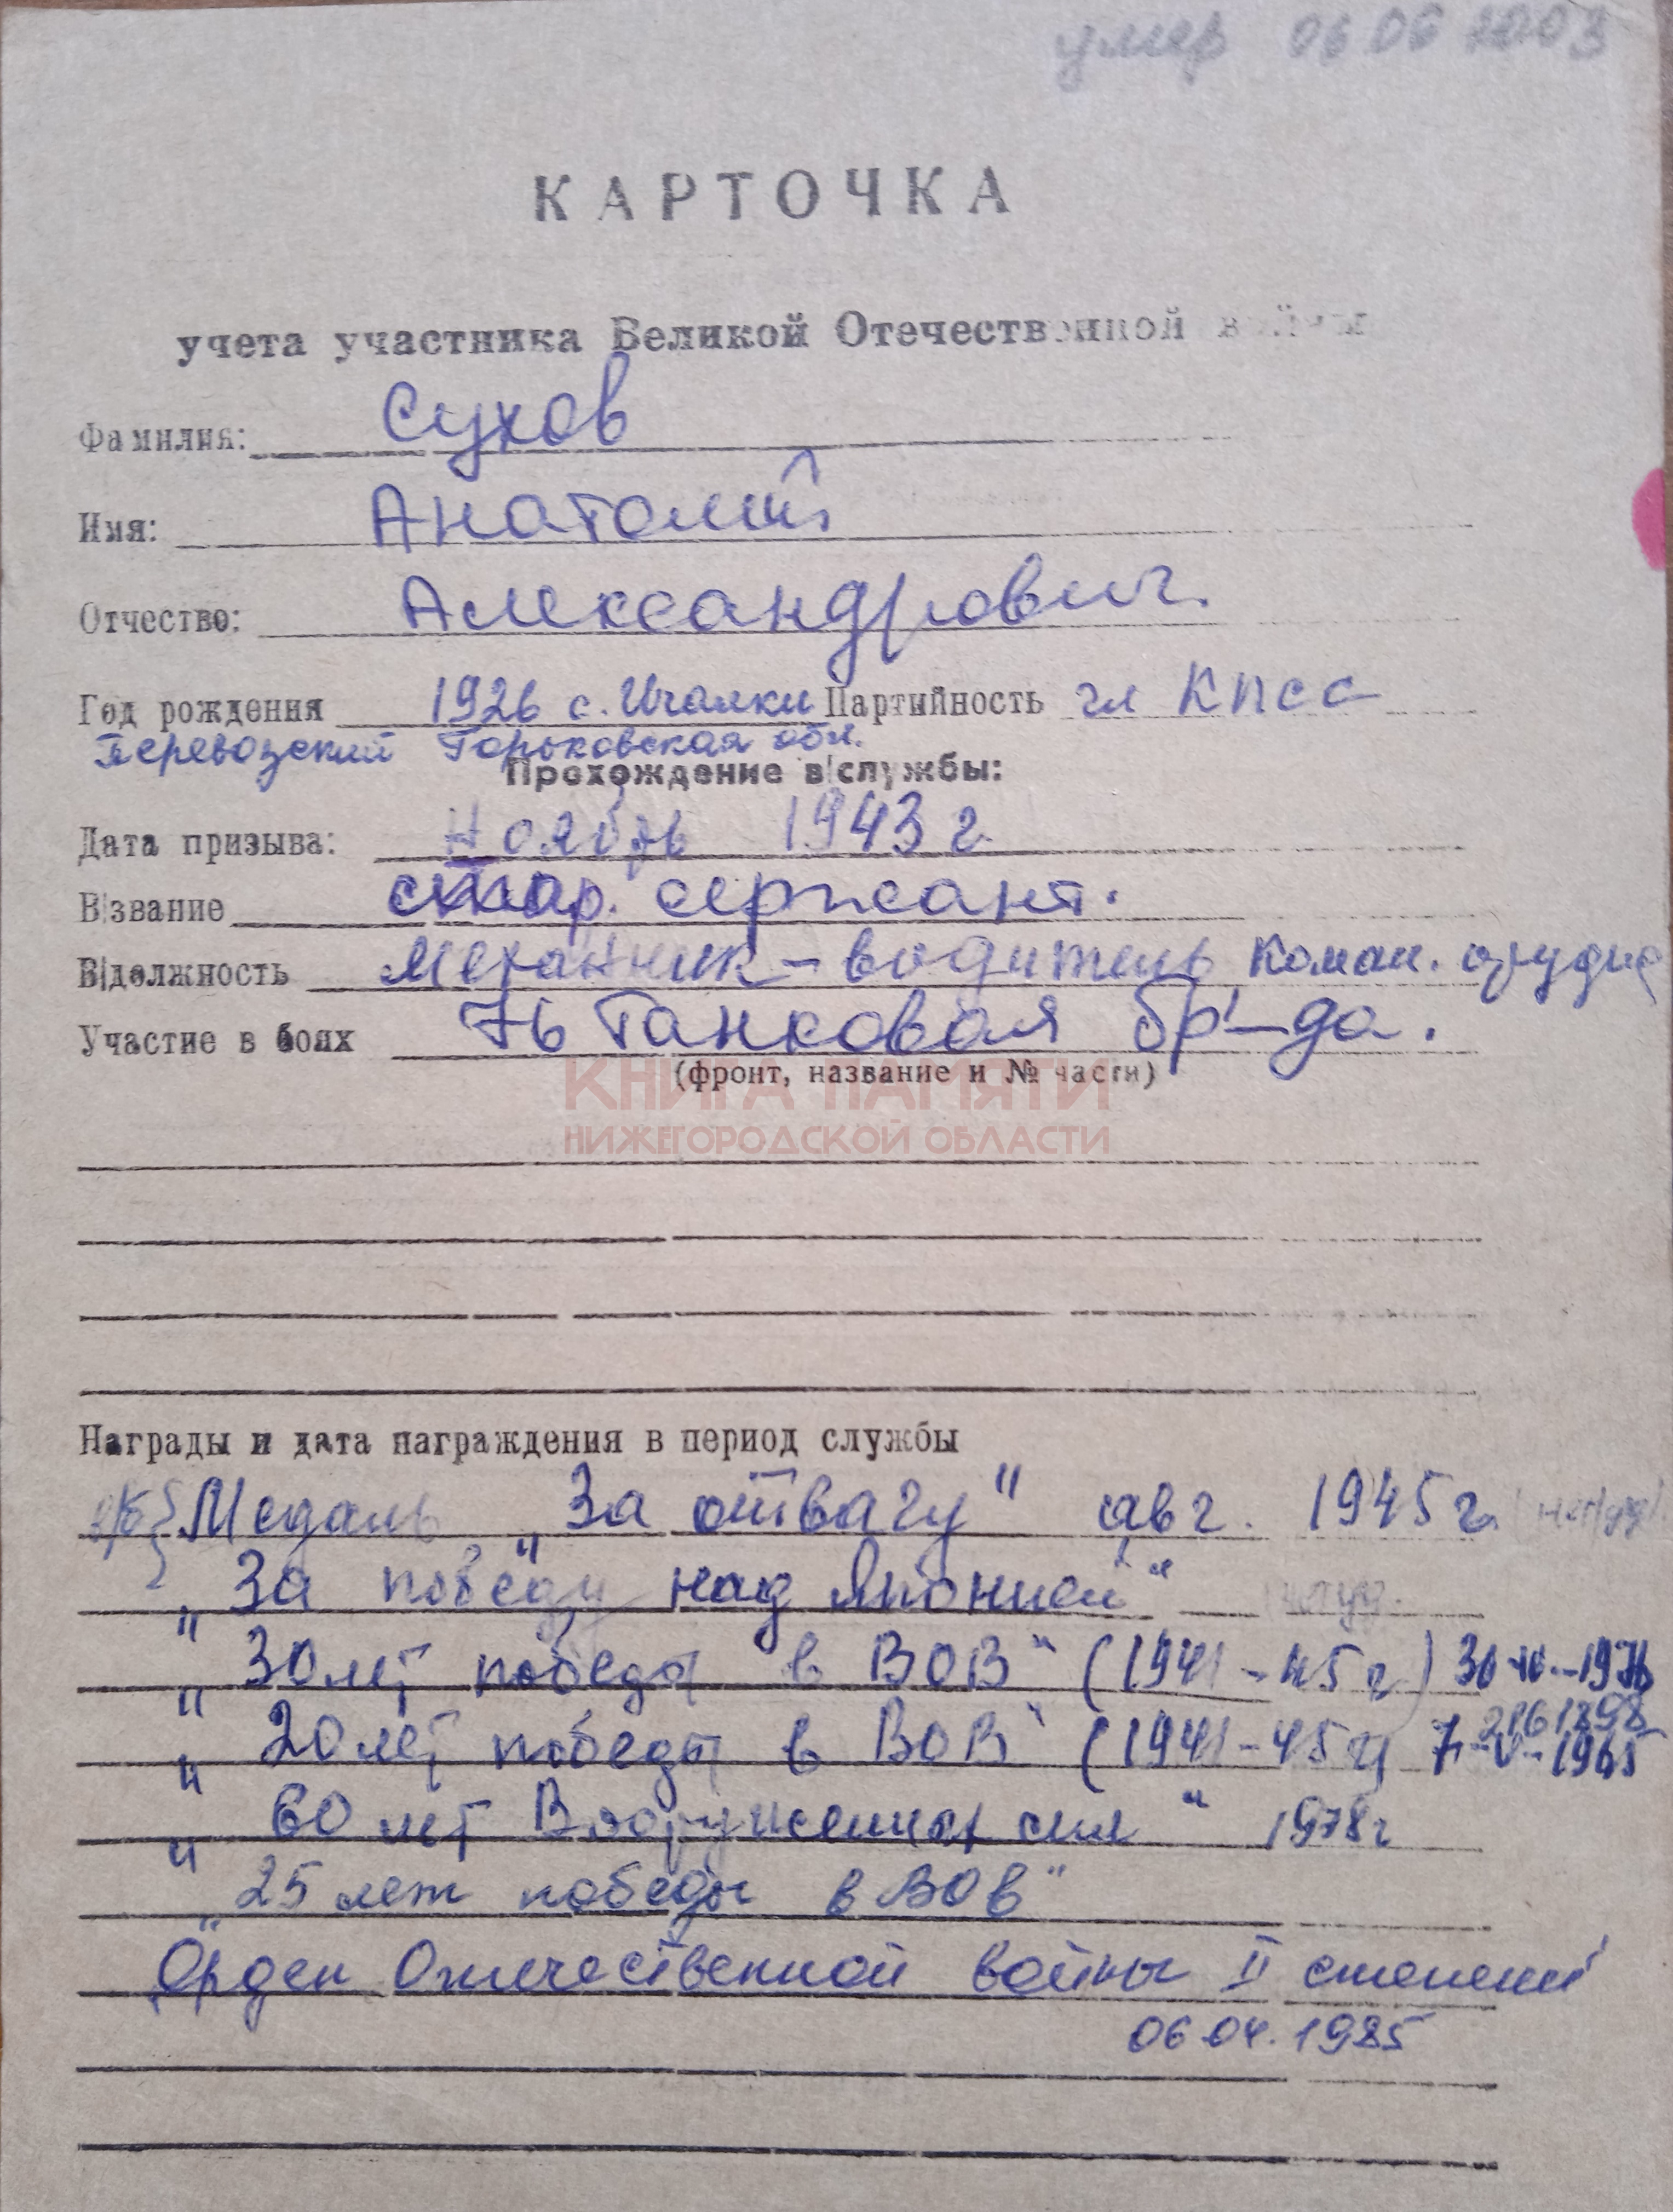 умер 06 06 2003
КАРТОЧКА
учета участника Великой Отечественной войны
Фамилия: Сухов
Имя: Анатолий
Отчество: Александрович.
Год рождения 1926 с. Ичалки Партийность чл КПСС
Перевозский Горьковская обл.
Прохождение в/службы:
Дата призыва: Ноябрь 1943 г.
В/звание стар. сержант.
В/должность Механик-водитель Коман. орудия
Участие в боях 76 Танковая бр-да.
(фронт, название и № части)
КНИГА ПАМЯТИ
НИЖЕГОРОДСКОЙ ОБЛАСТИ
Награды и дата награждения в период службы
Медаль "За отвагу" авг. 1945 г.
"За победу над Японией"
" 30 лет победы в ВОВ" (1941-45 г)
2161898
" 20 лет победы в ВОВ" (1941-45 г) 7-V-1965
" 60 лет Вооруженных сил" 1978г
" 25 лет победы в ВОВ"
Орден Отечественной войны II степени
06.04.1985